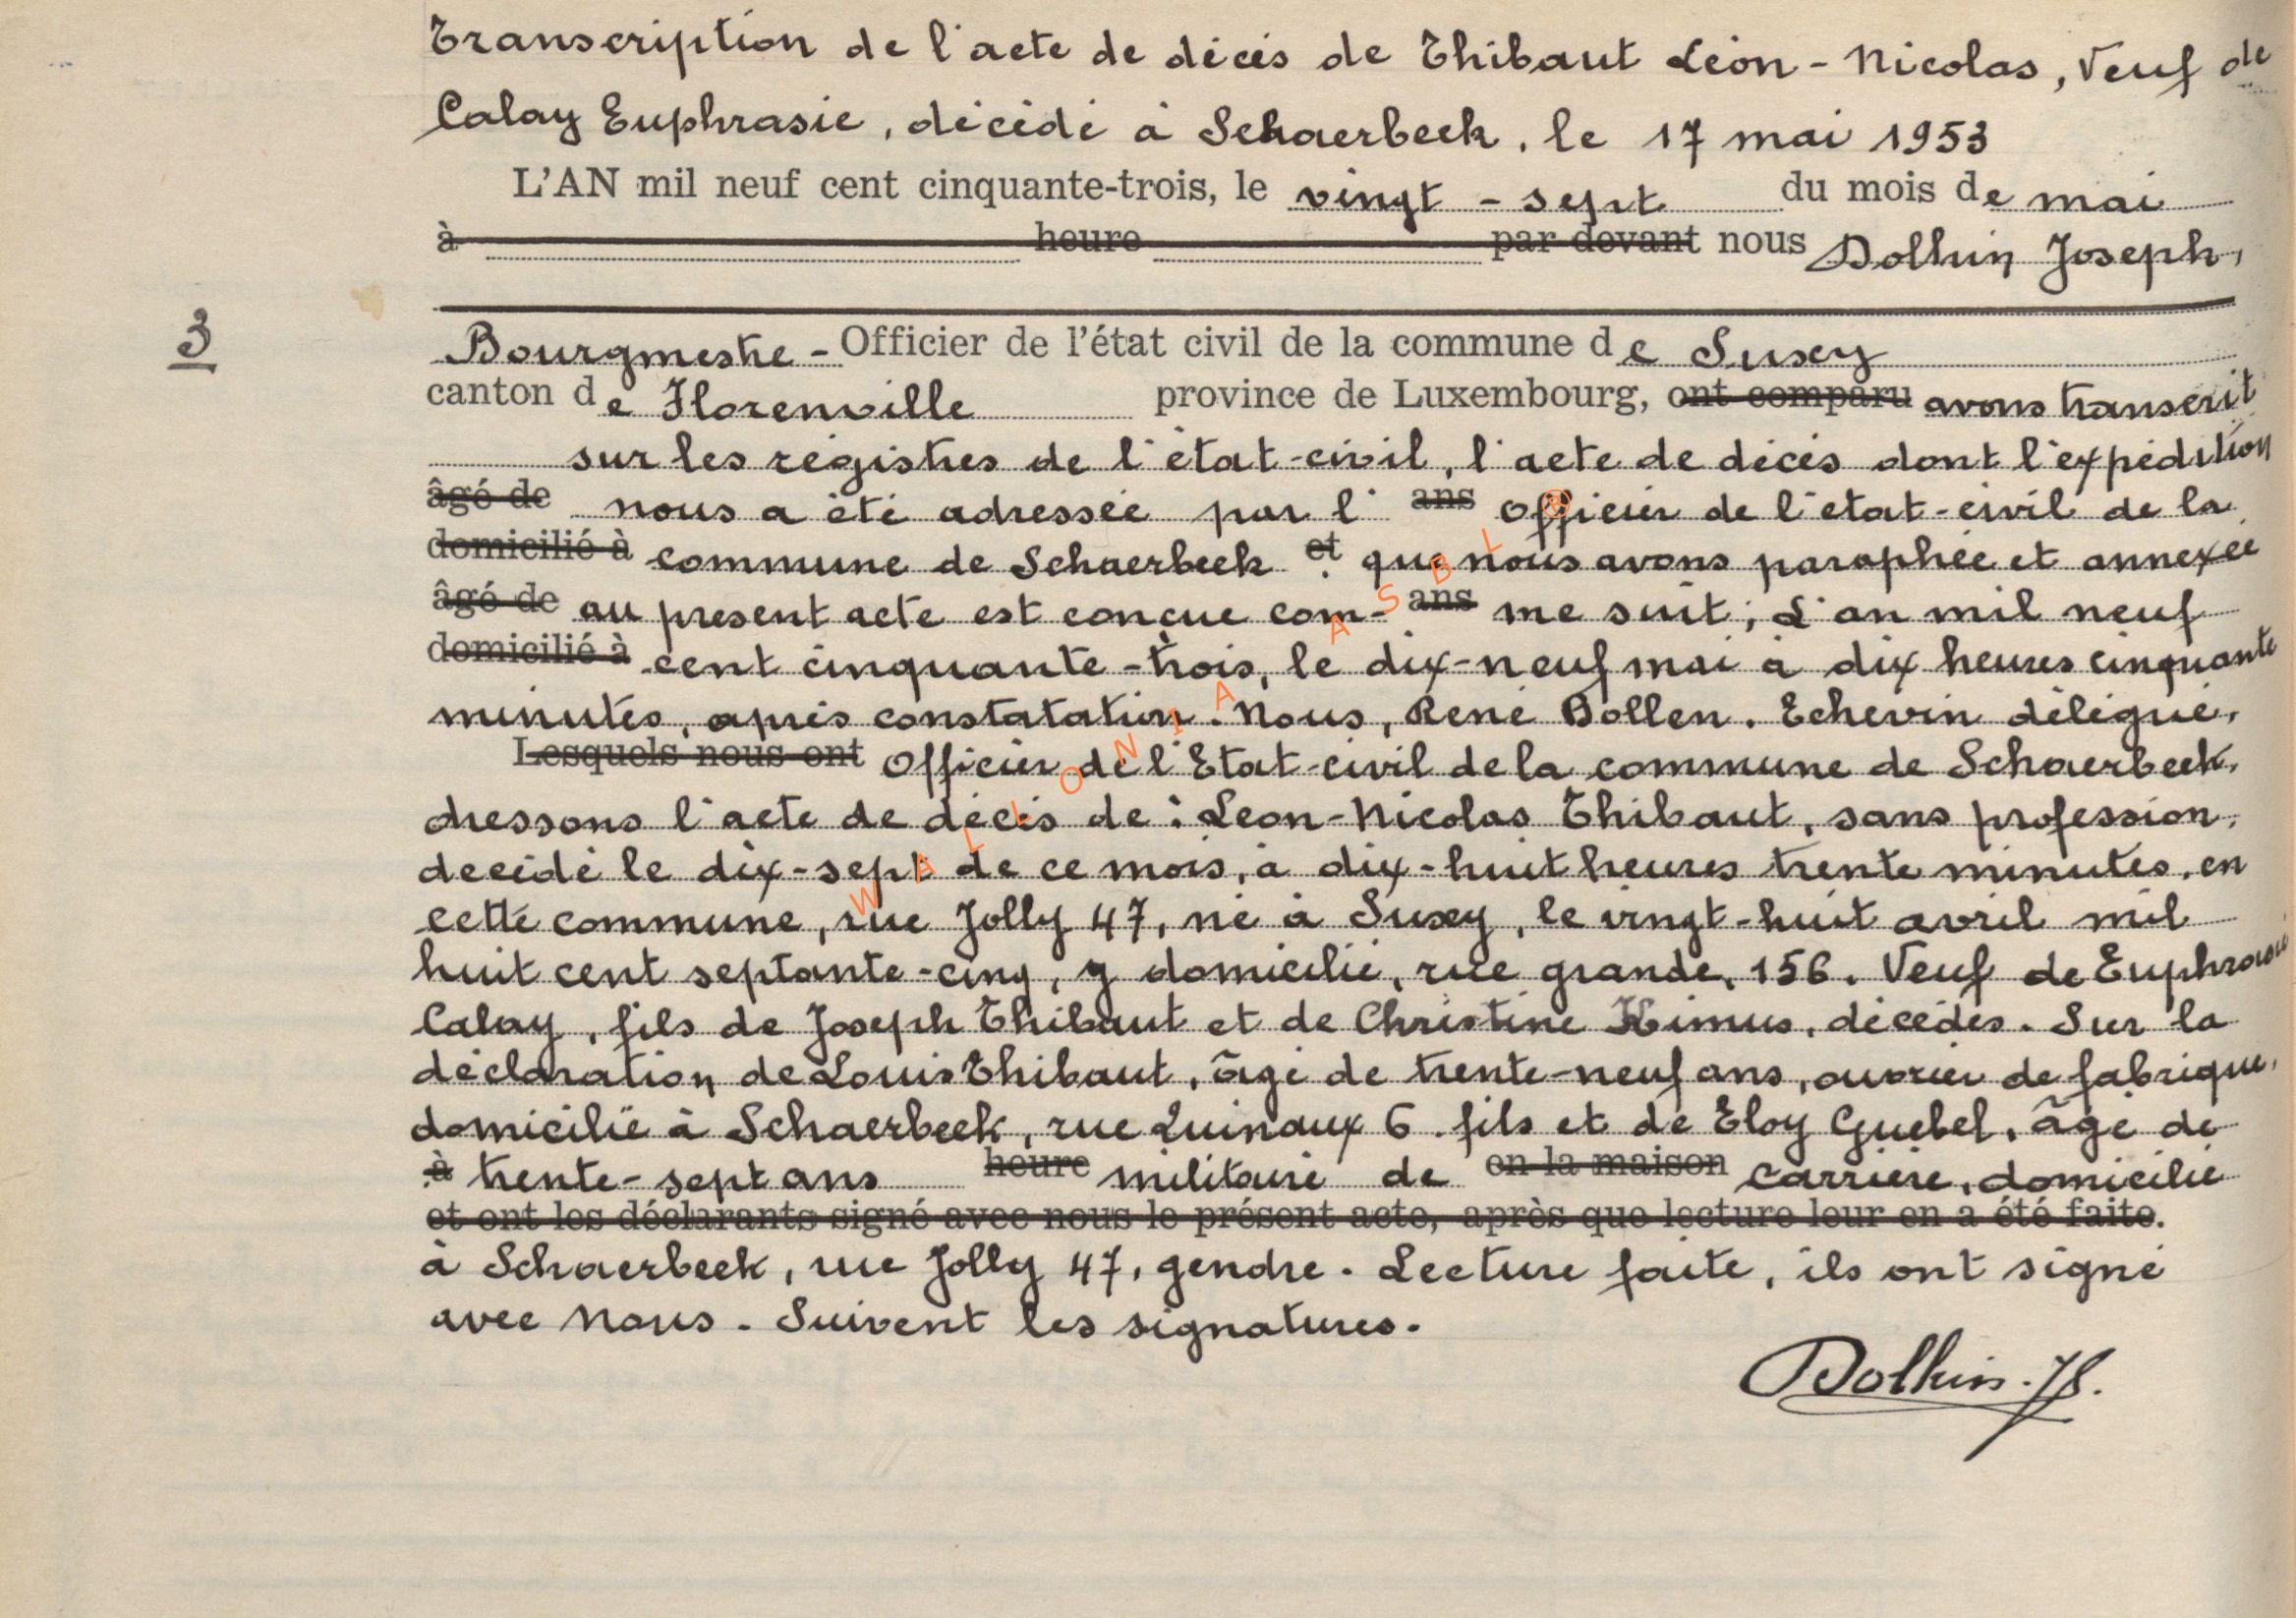 Transcription de l'acte de décès de Thibaut Léon - Nicolas, Veuf de
Calay Euphrasie, décédé à Schaerbeek, le 17 mai 1953
L'AN mil neuf cent cinquante-trois, le vingt - sept du mois de mai
à heure par devant nous Dolhin Joseph,
3
Bourgmestre - Officier de l'état civil de la commune de Suxey
canton de Florenville province de Luxembourg, ont comparu avons transcrit
sur les régistres de l'état-civil, l'acte de décès dont l'expédition
âgé de nous a été adressée par l' ans officier de l'état-civil de la
domicilié à commune de Schaerbeek et que nous avons paraphée et annexée
âgé de au present acte est concue com- ans me suit; L'an mil neuf
domicilié à cent cinquante-trois, le dix-neuf mai à dix heures cinquante
minutes, après constatation. Nous, René Dollen. Echevin délégué,
Lesquels nous ont Officier de l'Etat-civil de la commune de Schaerbeek,
dressons l'acte de décès de: Leon-Nicolas Thibaut, sans profession,
decédé le dix-sept de ce mois, à dix-huit heures trente minutes, en
cette commune, rue Jolly 47, né à Suxey, le vingt-huit avril mil
huit cent septante-cinq, y domicilié, rue grande, 156. Veuf de
Calay, fils de Joseph Thibaut et de Christine Himus, décédés. Sur la
déclaration de Louis Thibaut, âgé de trente-neuf ans, ouvrier de fabrique,
domicilié à Schaerbeek, rue Quinaux 6. fils et de Eloy Guebel, âgé de
à trente-sept ans heure militaire de en la maison carrière, domicilié
et ont les déclarants signé avec nous le présent acte, après que lecture leur en a été faite.
à Schaerbeek, rue Jolly 47, gendre. Lecture faite, ils ont signé
avec Nous. Suivent les signatures.
Dolhin. Js.
WALLONIA ASBL ®